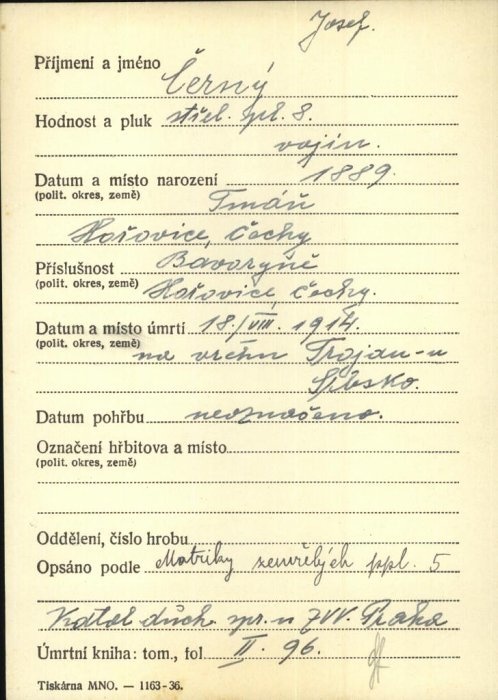 Josef.
Příjmení a jméno Černý
Hodnost a pluk střel. pl. 8.
vojín.
Datum a místo narození 1889.
(polit. okres, země) Tmáň
Hořovice, Čechy
Příslušnost Bavoryně
(polit. okres, země) Hořovice, Čechy.
Datum a místo úmrtí 18./VIII. 1914.
(polit. okres, země) na vrchu Trojan-u
Srbsko.
Datum pohřbu neoznačeno.
Označení hřbitova a místo
(polit. okres, země)
Oddělení, číslo hrobu
Opsáno podle Matriky zemřelých ppl. 5
Katol duch. spr. u ZVV. Praha
Úmrtní kniha: tom., fol. II. 96.
Tiskárna MNO. — 1163-36.